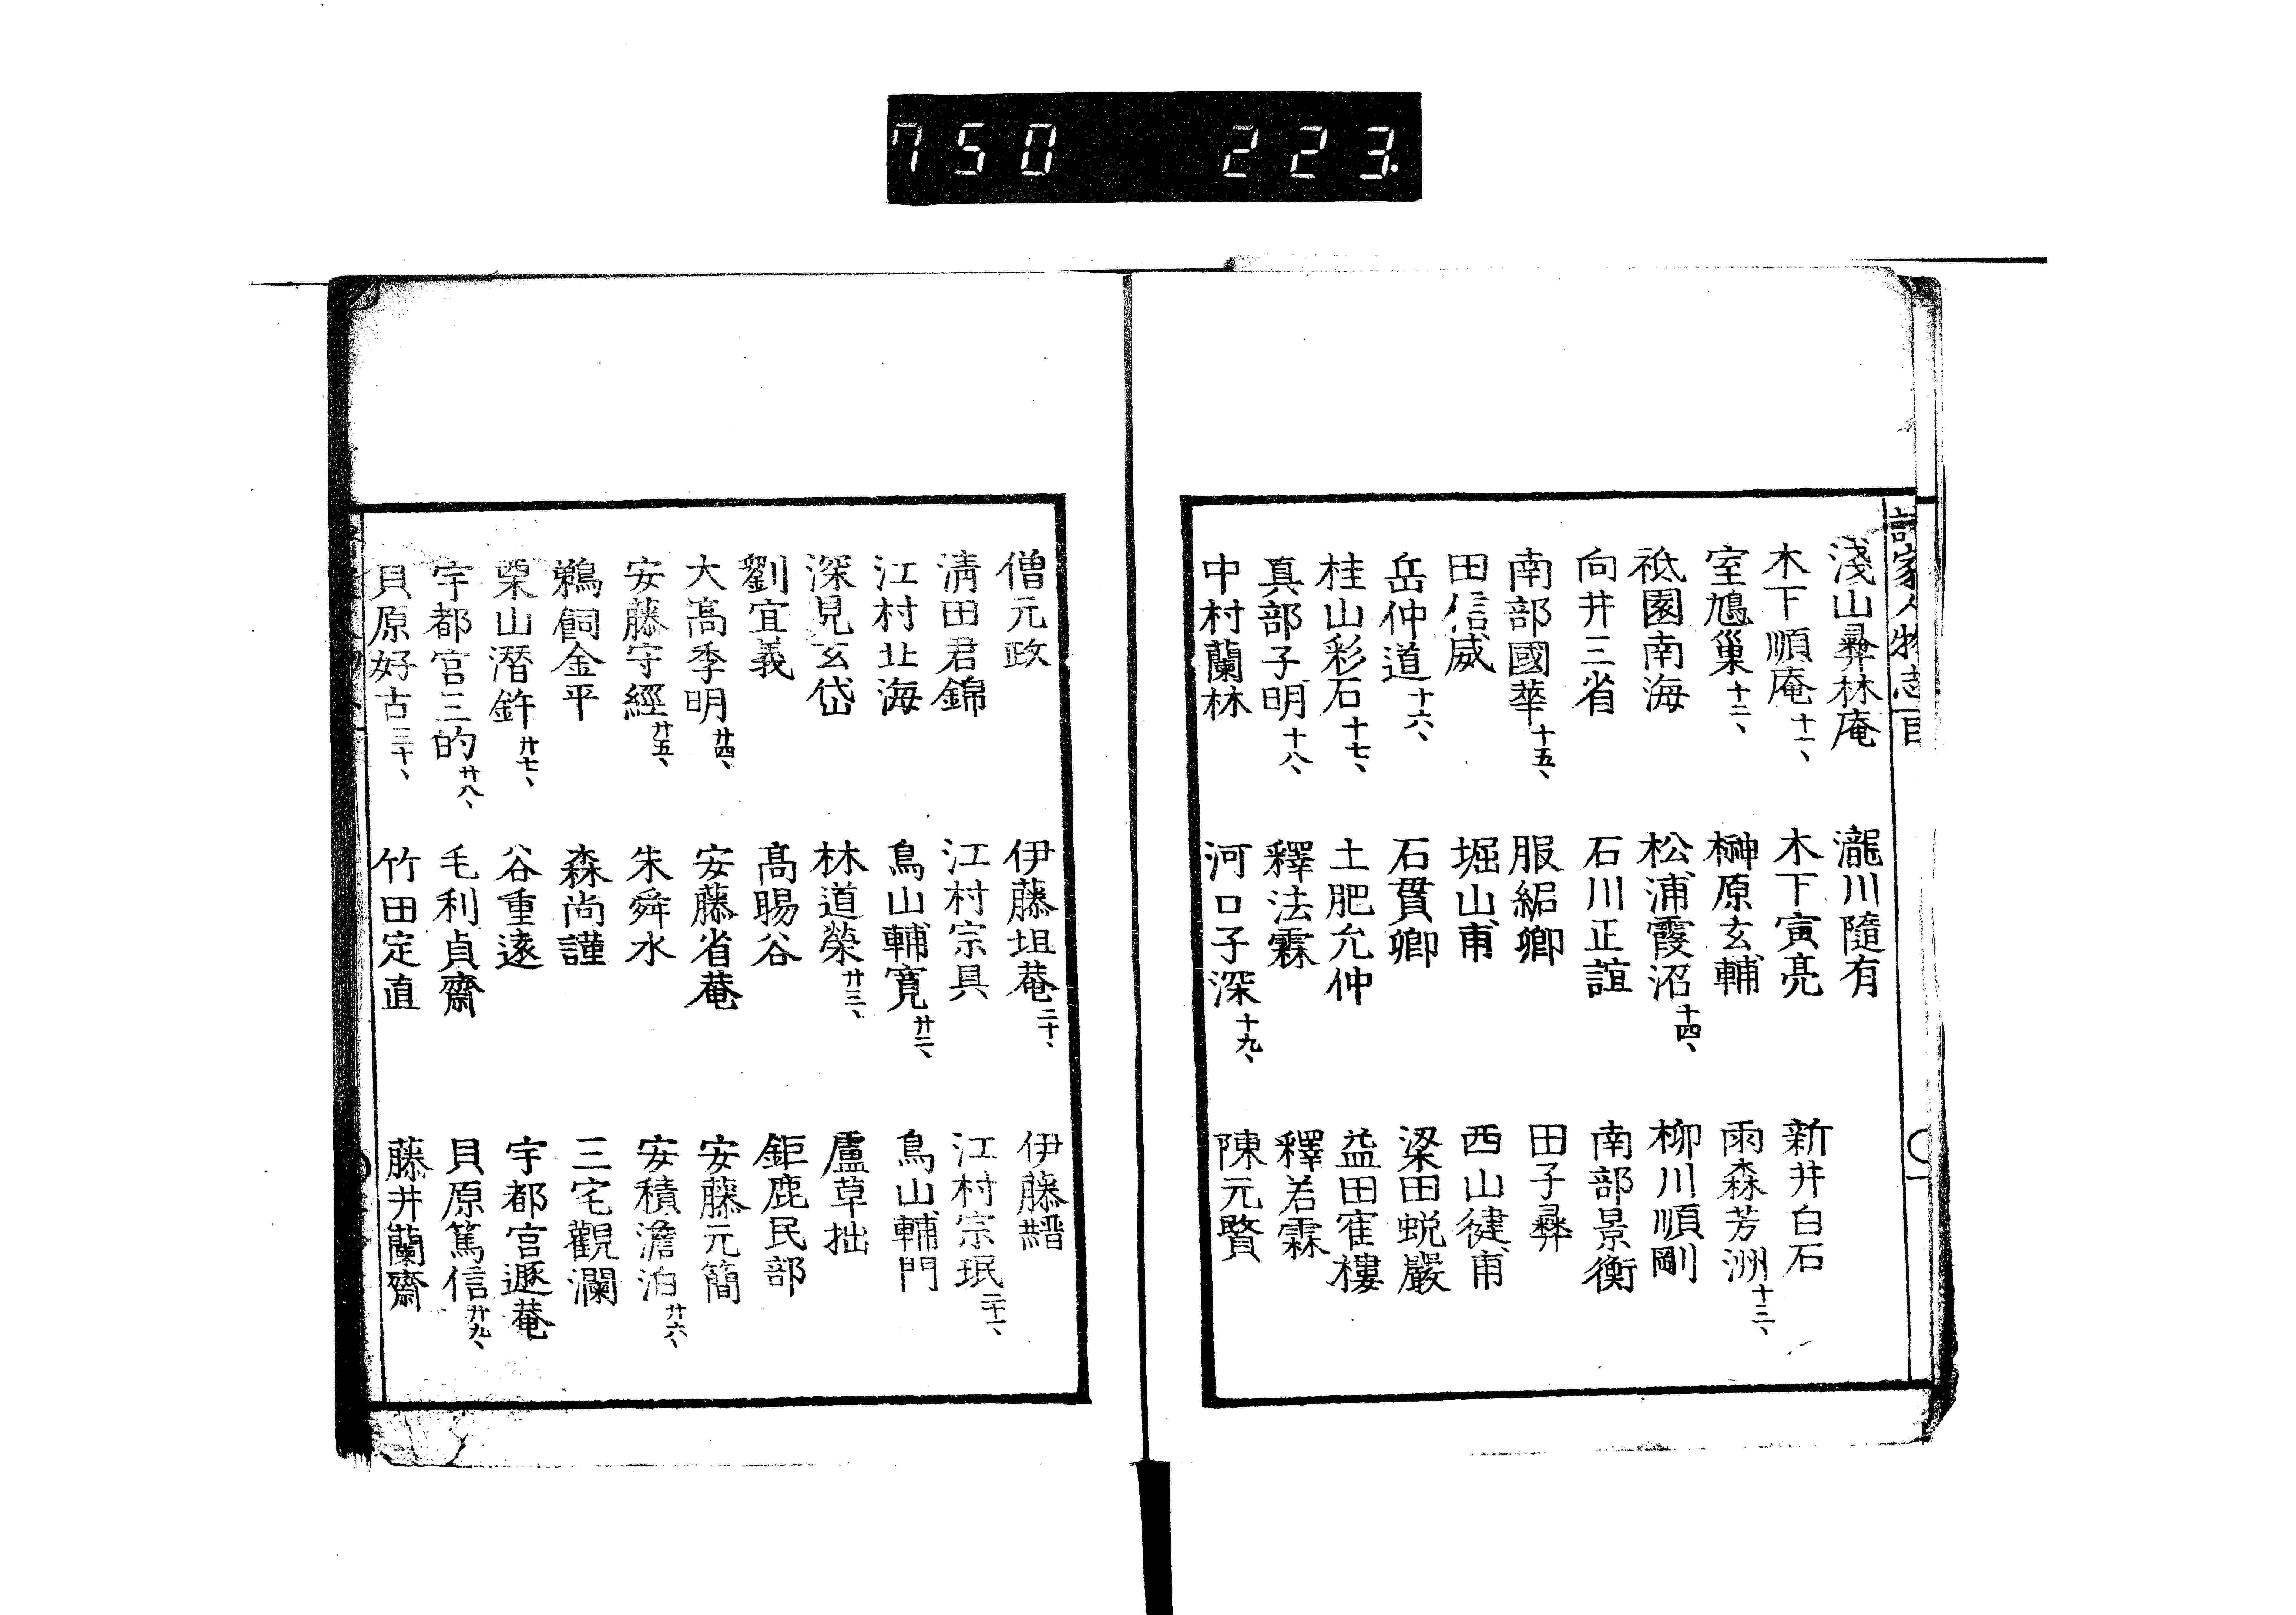 750 223.
詩家人物志目
淺山彛林庵 瀧川隨有
木下順庵十一、 木下寅亮 新井白石
室鳩巢十二、 榊原玄輔 雨森芳洲十三、
祗園南海 松浦霞沼十四、 柳川順剛
向井三省 石川正誼 南部景衡
南部國華十五、 服紹卿 田子彛
田信威 堀山甫 西山健甫
岳仲道十六、 石貫卿 梁田蛻巖
桂山彩石十七、 土肥允仲 益田寉樓
真部子明十八、 釋法霖 釋若霖
中村蘭林 河口子深十九、 陳元贇
僧元政 伊藤坦菴二十、 伊藤縉
淸田君錦 江村宗具 江村宗珉二十一、
江村北海 鳥山輔寬廿二、 鳥山輔門
深見玄岱 林道榮廿三、 盧草拙
劉宜義 髙賜谷 鉅鹿民部
大髙季明廿四、 安藤省菴 安藤元簡
安藤守經廿五、 朱舜水 安積澹泊廿六、
鵜飼金平 森尚謹 三宅觀瀾
栗山潛鋒廿七、 谷重遠 宇都宮遯菴
宇都宮三的廿八、 毛利貞齋 貝原篤信廿九、
貝原好古三十、 竹田定直 藤井蘭齋